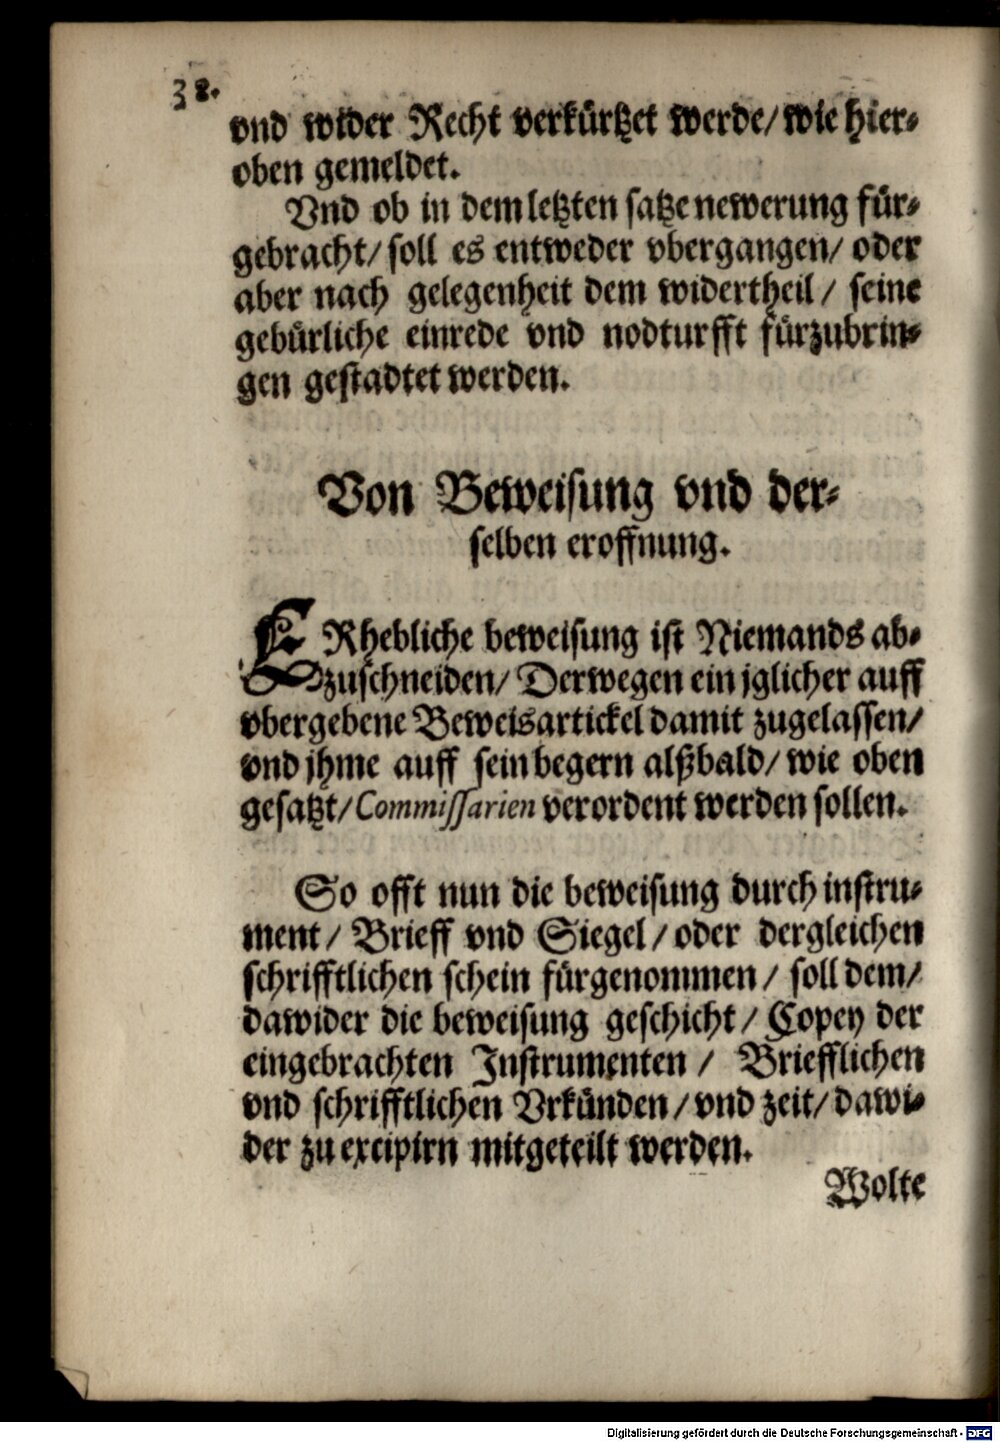 38.
vnd wider Recht verkürtzet werde/ wie hier⸗
oben gemeldet.
Vnd ob in dem letzten satze newerung für⸗
gebracht/ soll es entweder vbergangen/ oder
aber nach gelegenheit dem widertheil/ seine
gebürliche einrede vnd nodturfft fürzubrin⸗
gen gestadtet werden.
Von Beweisung vnd der⸗
selben eroffnung.
ERhebliche beweisung ist Niemands ab⸗
zuschneiden/ Derwegen ein jglicher auff
vbergebene Beweisartickel damit zugelassen/
vnd jhme auff sein begern alßbald/ wie oben
gesatzt/ Commissarien verordent werden sollen.
So offt nun die beweisung durch instru⸗
ment/ Brieff vnd Siegel/ oder dergleichen
schrifftlichen schein fürgenommen/ soll dem/
dawider die beweisung geschicht/ Copey der
eingebrachten Instrumenten/ Briefflichen
vnd schrifftlichen Vrkünden/ vnd zeit/ dawi⸗
der zu excipirn mitgeteilt werden.
Wolte
Digitalisierung gefördert durch die Deutsche Forschungsgemeinschaft - DFG